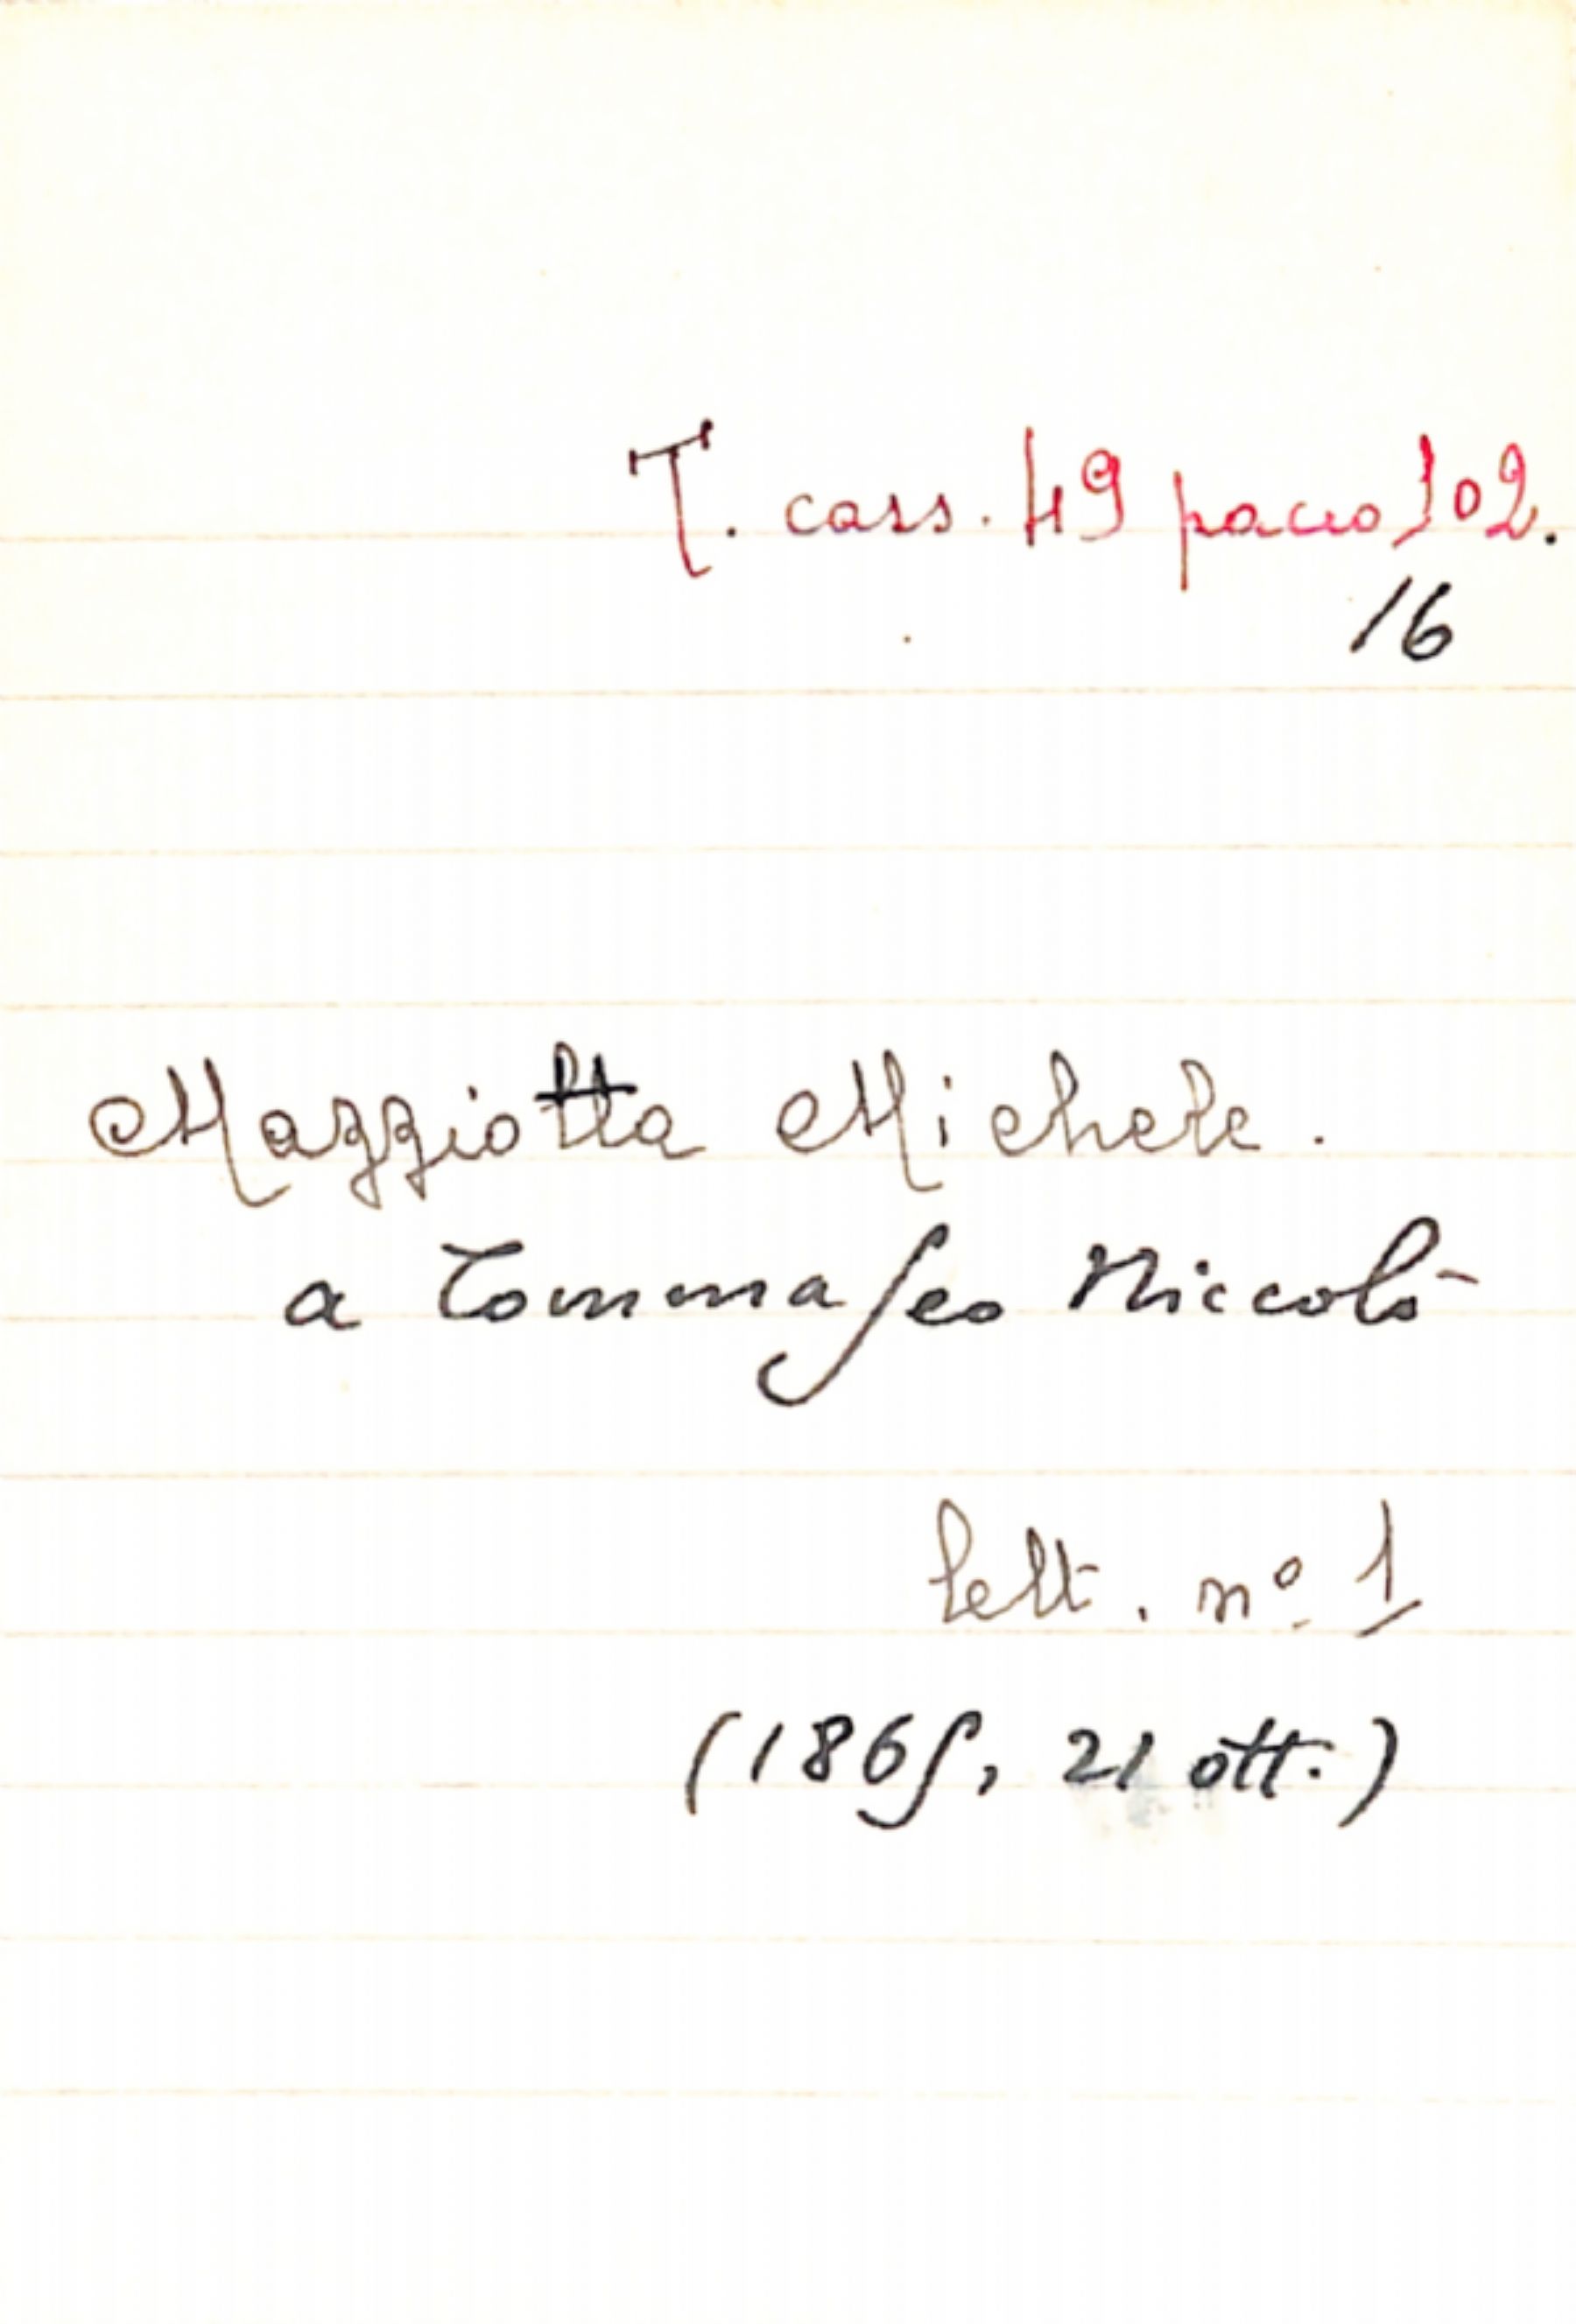 T. cass. 49 pacco 102.
16
Mazziotta Michele.
a Tommaseo Niccolò
lett. nº 1
(1865, 21 ott.)